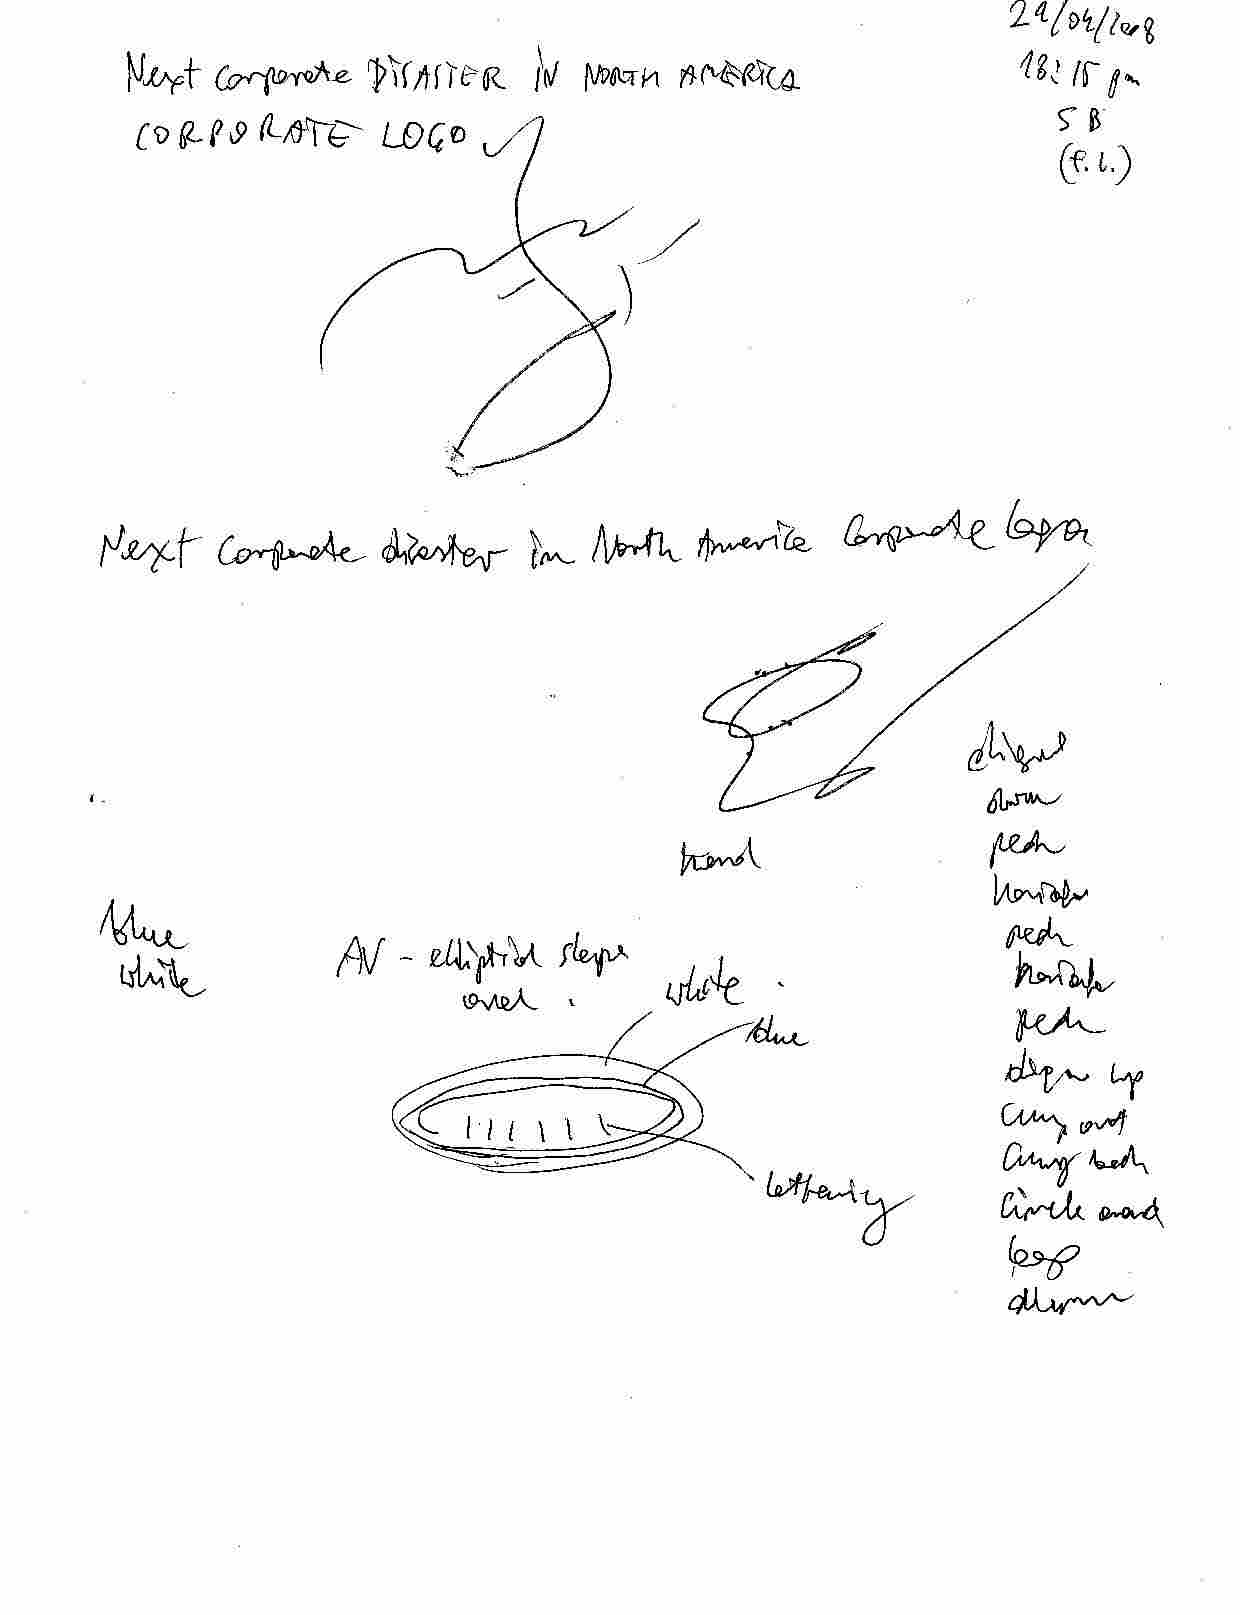 29/04/2008
18:15 pm
SB
(f.l.)
Next corporate DISASTER IN NORTH AMERICA
CORPORATE LOGO
Next corporate disaster in North America Corporate logo
hand
down
peak
peak
peak
up
Curving
Curving back
Circle around
loop
blue
white
AV - elliptical shape
oval.
white
blue
lettering